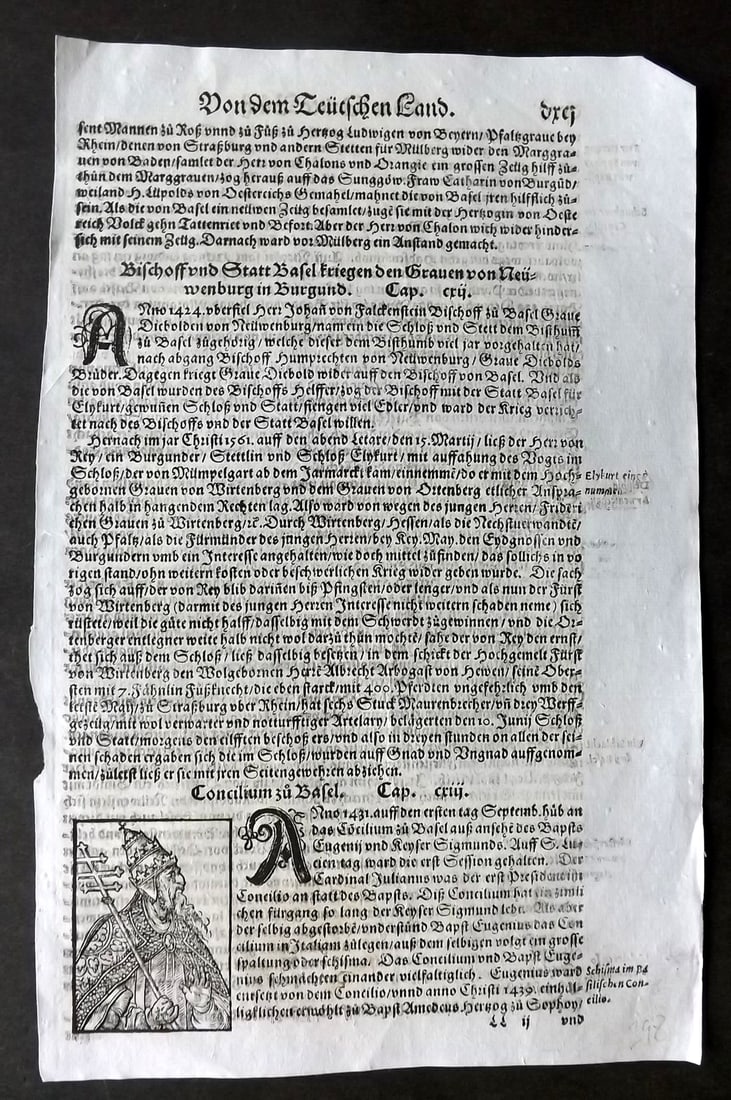 Von dem Teütschen Land. dxcj
sent Mannen zů Roß vnnd zů Fůß zů Hertzog Ludwigen von Beyern/ Pfaltzgraue bey
Rhein/denen von Straßburg vnd andern Stetten für Mülberg wider den Marggra-
uen von Baden/samlet der Herr von Chalons vnd Orangie ein grossen Zeüg hilff zů-
thůn dem Marggrauen/zog herauß auff das Sunggöw. Fraw Catharin von Burgūd/
weiland H. Lüpolds von Oesterreichs Gemahel/mahnet die von Basel jren hilfflich zů-
sein. Als die von Basel ein neüwen Zeüg besamlet/zugē sie mit der Hertzogin von Oeste
reich Volck gehn Tattenriet vnd Befort. Aber der Herr von Chalon wich wider hinder-
sich mit seinem Zeüg. Darnach ward vor Mülberg ein Anstand gemacht.
Bischoff vnd Statt Basel kriegen den Grauen von Neü-
wenburg in Burgund. Cap. cxij.
ANno 1424. vberfiel Herr Johañ von Falckenstein Bischoff zů Basel Graue
Diebolden von Neüwenburg/nam ein die Schloß vnd Stett dem Bisthum̃
zů Basel zůgehörig/ welche dieser dem Bisthumb viel jar vorgehalten hat/
nach abgang Bischoff Humprechten von Neüwenburg/ Graue Diebolds
Brůder. Dagegen kriegt Graue Diebold wider auff den Bischoff von Basel. Vnd als
die von Basel wurden des Bischoffs Helffer/zog der Bischoff mit der Statt Basel für
Elykurt/gewuñen Schloß vnd Statt/fiengen viel Edler/vnd ward der Krieg verrich-
tet nach des Bischoffs vnd der Statt Basel willen.
Hernach im jar Christi 1561. auff den abend Letare/den 15. Martij/ ließ der Herr von
Rey/ ein Burgunder/ Stettlin vnd Schloß Elykurt/ mit auffahung des Vogts im
Schloß/der von Mümpelgart ab dem Jarmarckt kam/einnemmē/do er mit dem Hoch-
gebornen Grauen von Wirtenberg vnd dem Grauen von Ortenberg etlicher Anspra-
chen halb in hangendem Rechten lag. Also ward von wegen des jungen Herren/ Frideri
chen Grauen zů Wirtenberg/ꝛc. Durch Wirtenberg/ Hessen/als die Nechstuerwandtē/
auch Pfaltz/als die Fürmünder des jungen Herren/bey Key. May. den Eydgnossen vnd
Burgundern vmb ein Interesse angehalten/wie doch mittel zůfinden/das sollichs in vo
rigen stand/ohn weitern kosten oder beschwerlichen Krieg wider geben wurde. Die sach
zog sich auff/der von Rey blib dariñen biß Pfingsten/oder lenger/vnd als nun der Fürst
von Wirtenberg (darmit des jungen Herren Interesse nicht weitern schaden neme) sich
rüstete/weil die güte nicht halff/dasselbig mit dem Schwerdt zůgewinnen/ vnd die Or-
tenberger entlegner weite halb nicht wol darzů thůn mochtē/sahe der von Rey den ernst/
thet sich auß dem Schloß/ ließ dasselbig besetzen/ in dem schickt der Hochgemelt Fürst
von Wirtenberg den Wolgebornen Herrē Albrecht Arbogast von Hewen/seinē Ober-
sten mit 7. Fähnlin Fůßknecht/die eben starck/mit 400. Pferdten vngefehrlich vmb den
letste May/zů Straßburg vber Rhein/hat sechs Stuck Maurenbrecher/vñ drey Werff-
gezeüg/mit wol verwarter vnd notturfftiger Artelary/belägerten den 10. Junij Schloß
vnd Statt/morgens den eilfften beschoß ers/vnd also in dreyen stunden on allen der sei-
nen schaden ergaben sich die im Schloß/wurden auff Gnad vnd Vngnad auffgenom-
men/zůletst ließ er sie mit jren Seitengewehren abziehen.
Elykurt eingē
nummen.
Concilium zů Basel. Cap. cxiij.
ANno 1431. auff den ersten tag Septemb. hůb an
das Cōcilium zů Basel auß ansehē des Bapsts
Eugenij vnd Keyser Sigmunds. Auff S. Lu-
cien tag ward die erst Session gehalten. Der
Cardinal Julianus was der erst President im
Concilio an statt des Bapsts. Diß Concilium hat ein zimli
chen fürgang so lang der Keyser Sigmund lebt. Als aber
der selbig abgestorbē/vnderstůnd Bapst Eugenius das Con
cilium in Italiam zůlegen/auß dem selbigen volgt ein grosse
spaltung oder schisma. Das Concilium vnd Bapst Euge-
nius schmächten einander vielfaltiglich. Eugenius ward
entsetzt von dem Concilio/vnnd anno Christi 1439. einhäl-
ligklichen erwöhlt zů Bapst Amedeus Hertzog zů Sophoy/
Schisma im Ba
silischen Con-
cilio.
LL ij vnd